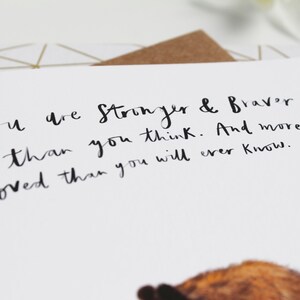 u are Stronger & Braver
than you think. And more
oved than you will ever know.